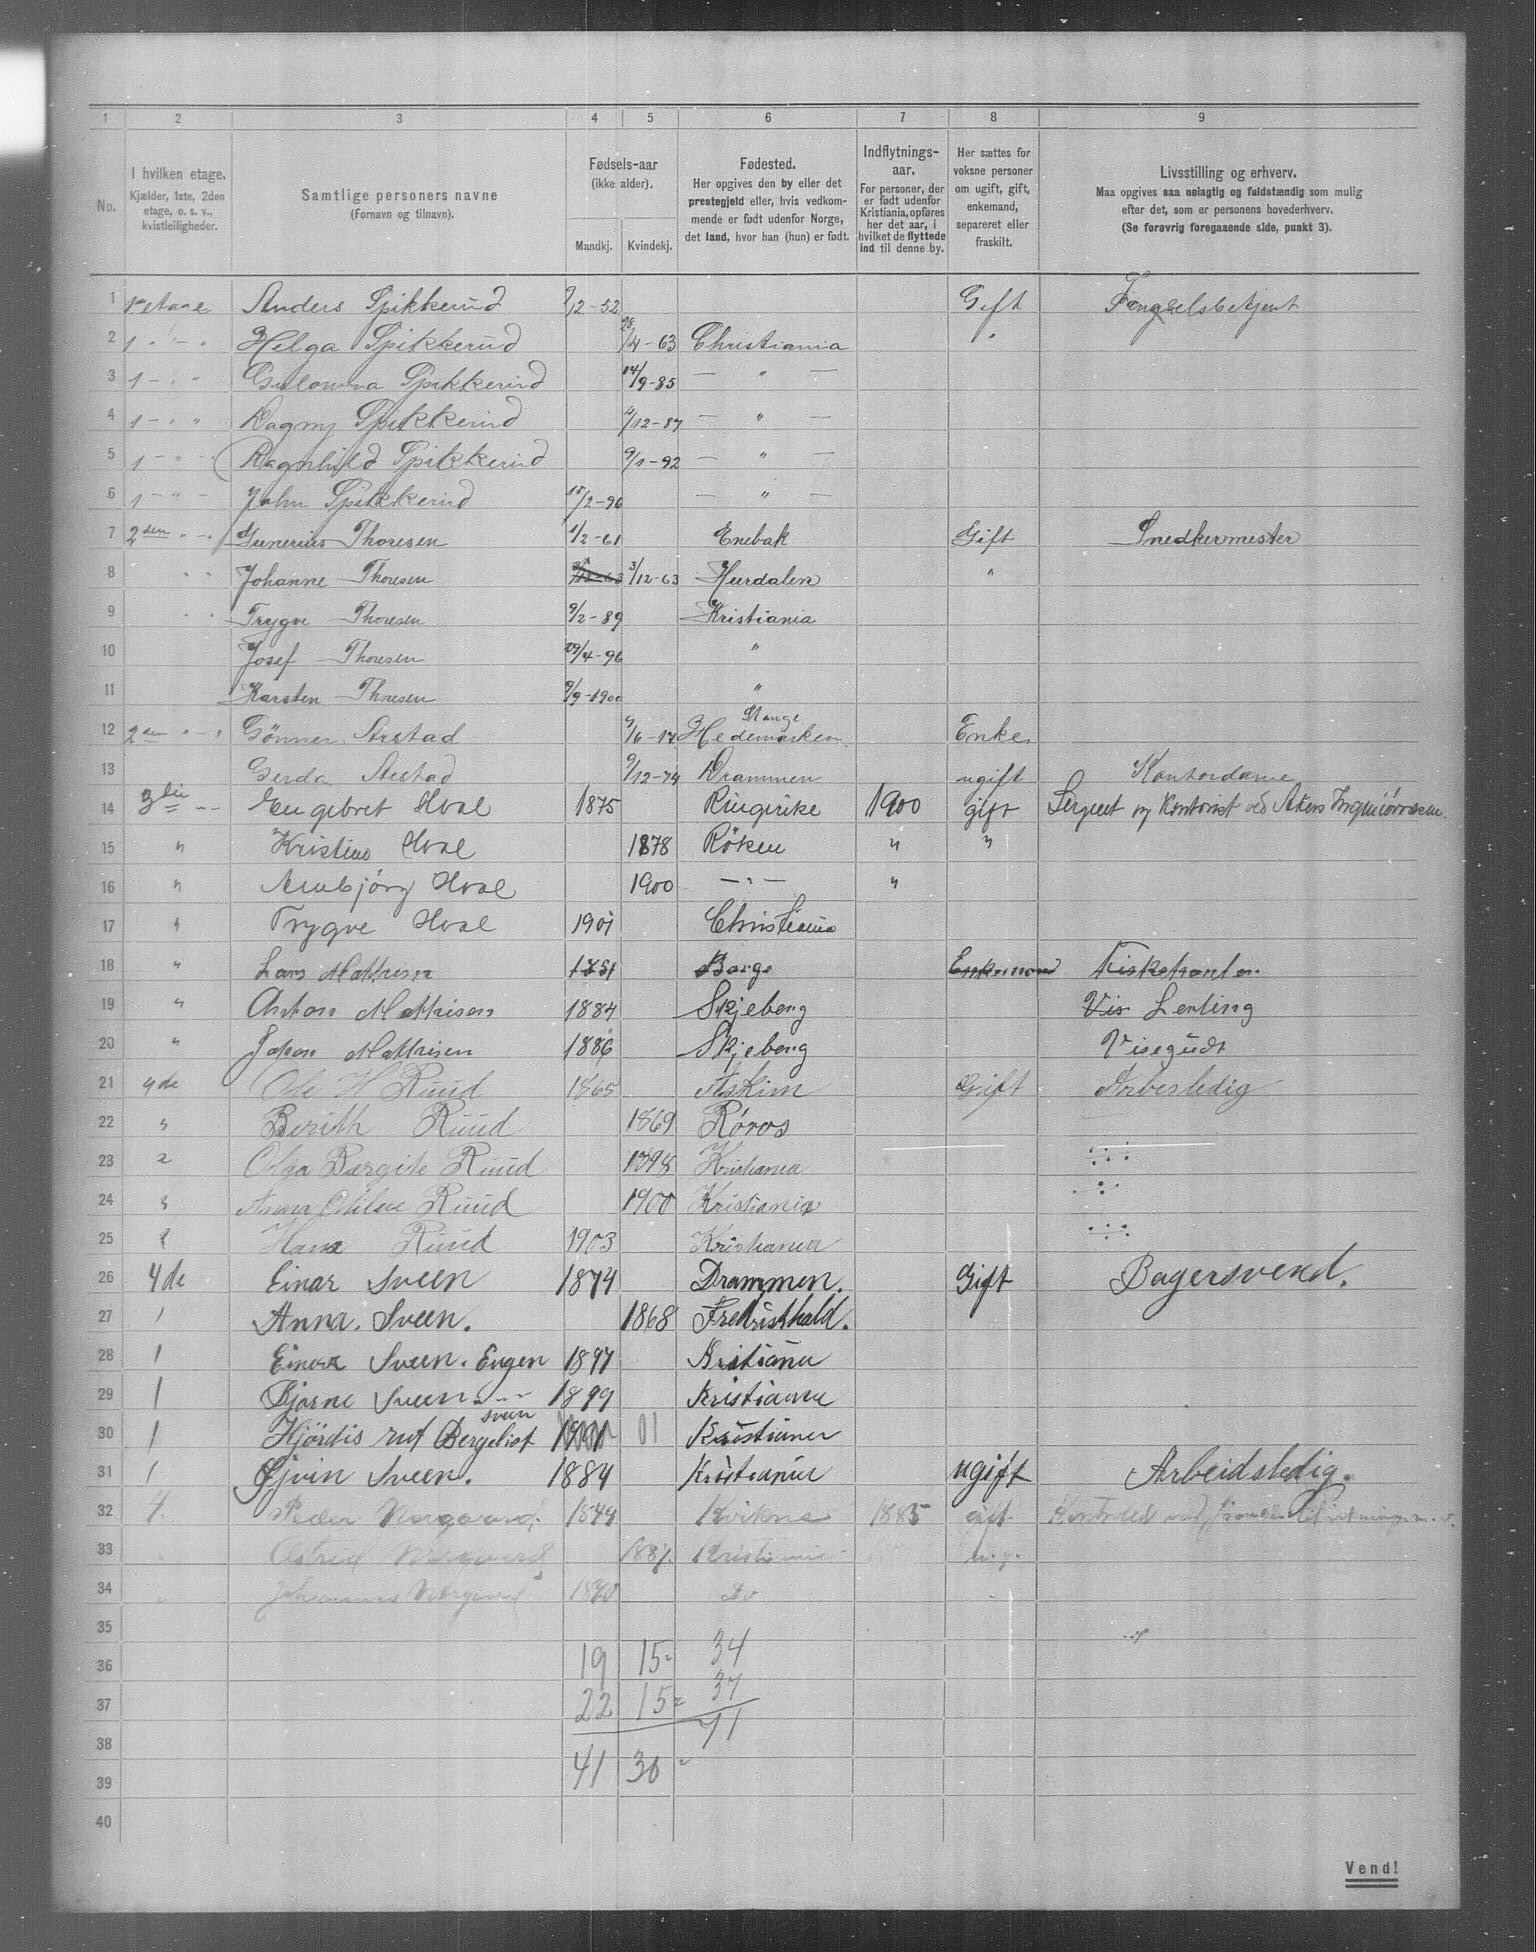 1 2 3 4 5 6 7 8 9
No.
I hvilken etage.
Kjælder, 1ste, 2den
etage, o. s. v.,
kvistleiligheder.
Samtlige personers navne
(Fornavn og tilnavn).
Fødsels-aar
(ikke alder).
Mandkj. Kvindekj.
Fødested.
Her opgives den by eller det
prestegjeld eller, hvis vedkom-
mende er født udenfor Norge,
det land, hvor han (hun) er født.
Indflytnings-
aar.
For personer, der
er født udenfor
Kristiania, opføres
her det aar, i
hvilket de flyttede
ind til denne by.
Her sættes for
voksne personer
om ugift, gift,
enkemand,
separeret eller
fraskilt.
Livsstilling og erhverv.
Maa opgives saa nøiagtig og fuldstændig som mulig
efter det, som er personens hovederhverv.
(Se forøvrig foregaaende side, punkt 3).
1 1ste etage Anders Spikkerud 9/12-52 Gift Fængselsbetjent
2 1 " - " Helga Spikkerud 28/4-63 Christiania "
3 1 - " " Spikkerud 14/9-85 — " —
4 1 - " " Dagny Spikkerud 4/12-87 — " —
5 1 - " - Ragnhild Spikkerud 9/1-92 — " —
6 1 - " - John Spikkerud 15/2-96 — " —
7 2den " - " Gunerius Thoresen 1/2-61 Enebak Gift Snedkermester
8 " " Johanne Thoresen 3/12-63 3/12-63 Hurdalen "
9 " " Trygve Thoresen 9/2-89 Kristiania
10 Josef Thoresen 29/4-96 "
11 Karsten Thoresen 9/9-1900 "
12 2den " - " Gönner Arstad 9/6-17 Stange Hedemarken Enke
13 Gerda Arstad 9/12-74 Drammen ugift Kontordame
14 3die - - Engebret Hval 1875 Ringerike 1900 gift Serjeant og Kontorist ved Akers Ingeniörvæsen.
15 " Kristine Hval 1878 Röken " "
16 " Arnbjörg Hval 1900 — " — "
17 " Trygve Hval 1901 Christiania
18 " Lars Mathisen 1851 Borge Enkemand Fiskehandler
19 " Anton Mathisen 1884 Skjeberg Vis Lerling
20 " Johan Mathisen 1886 Skjeberg Visegudt
21 4de Ole H Ruud 1865 Askim Gift Arbesledig
22 " Berith Ruud 1869 Røros
23 " Olga Bergite Ruud 1898 Kristiania
24 " Anna Ruud 1900 Kristiania
25 " Hans Ruud 1903 Kristiania
26 4de Einar Sveen 1874 Drammen. Gift Bagersvend.
27 1 Anna. Sveen. 1868 Fredrikshald.
28 1 Einar Sveen. Eugen 1897 Kristiania
29 1 Bjarne Sveen - - - 1899 Kristiania
30 1 Hjördis rut Bergeliot Sveen 1901 01 Kristiania
31 1 Ejvin Sveen. 1884 Kristiania ugift Arbeidsledig.
32 4. Peder Norgaard. 1844 Kvikne 1885 gift
33 " Astrid Norgaard Kristiania ug.
34 " Johannes Norgaard Do
35
36 19 15- 34
37 22 15- 37
38 71
39 41 30 -
40
Vend!